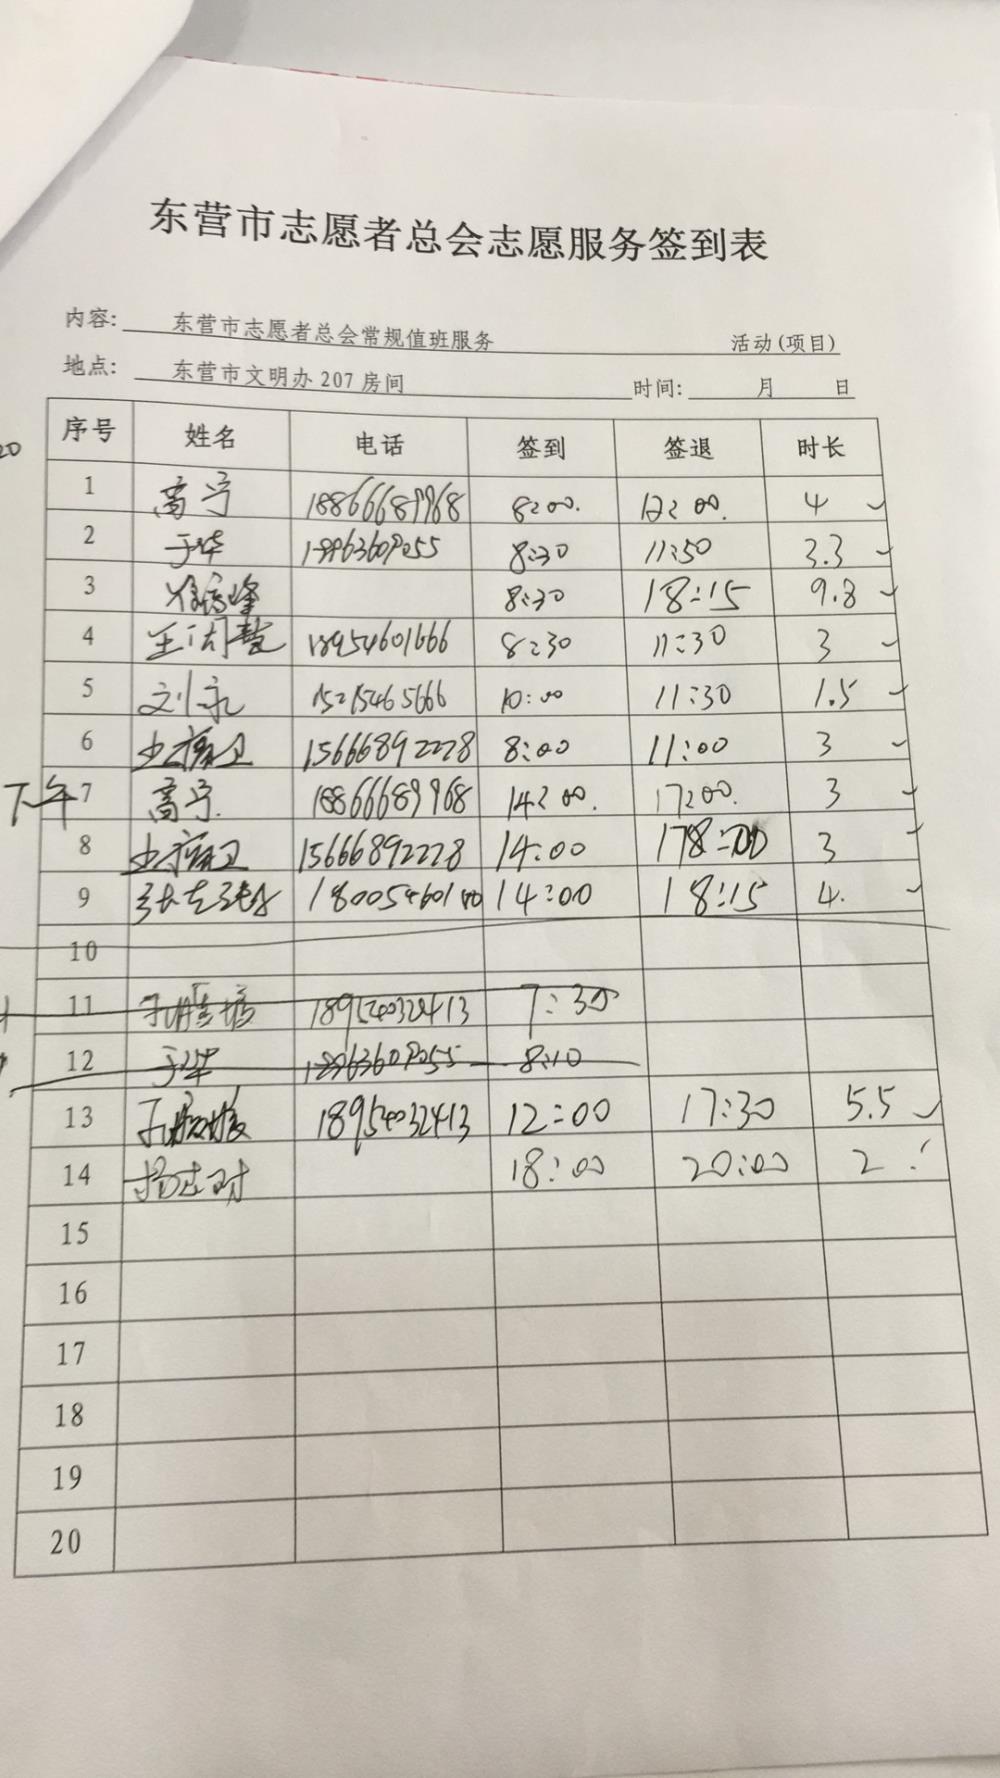 东营市志愿者总会志愿服务签到表
内容: 东营市志愿者总会常规值班服务 活动(项目)
地点: 东营市文明办207房间 时间: 月 日
序号 姓名 电话 签到 签退 时长
20
1 高宁 18866689968 8:00. 12:00. 4
2 于华 8:30 11:50 3.3
3 8:30 18:15 9.8
4 18954601666 8:30 11:30 3
5 刘永 15215465666 10:00 11:30 1.5
6 15666892228 8:00 11:00 3
下午 7 高宁. 18866689968 14:00. 17:00. 3
8 15666892228 14:00 3
9 14:00 18:15 4.
10
11 18954032413 7:30
12 于华 8:10
13 18954032413 12:00 17:30 5.5
14 18:00 20:00 2
15
16
17
18
19
20